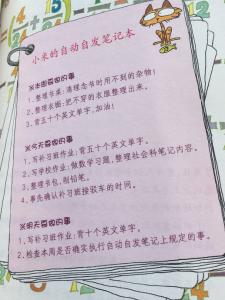 小米的自动自发笔记本
※本周要做的事
1、整理书桌:清理念书时用不到的杂物!
2、整理衣橱:把不穿的衣服整理出来。
3、背五十个英文单字,加油!
※今天要做的事
1、写补习班作业:背五个英文单字。
2、写学校作业:做数学习题,整理社会科笔记内容。
3、整理书包,削铅笔。
4、事先确认补习班接驳车的时间。
※明天要做的事
1、写补习班作业:背十个英文单字。
2、检查本周是否确实执行自动自发笔记上规定的事。